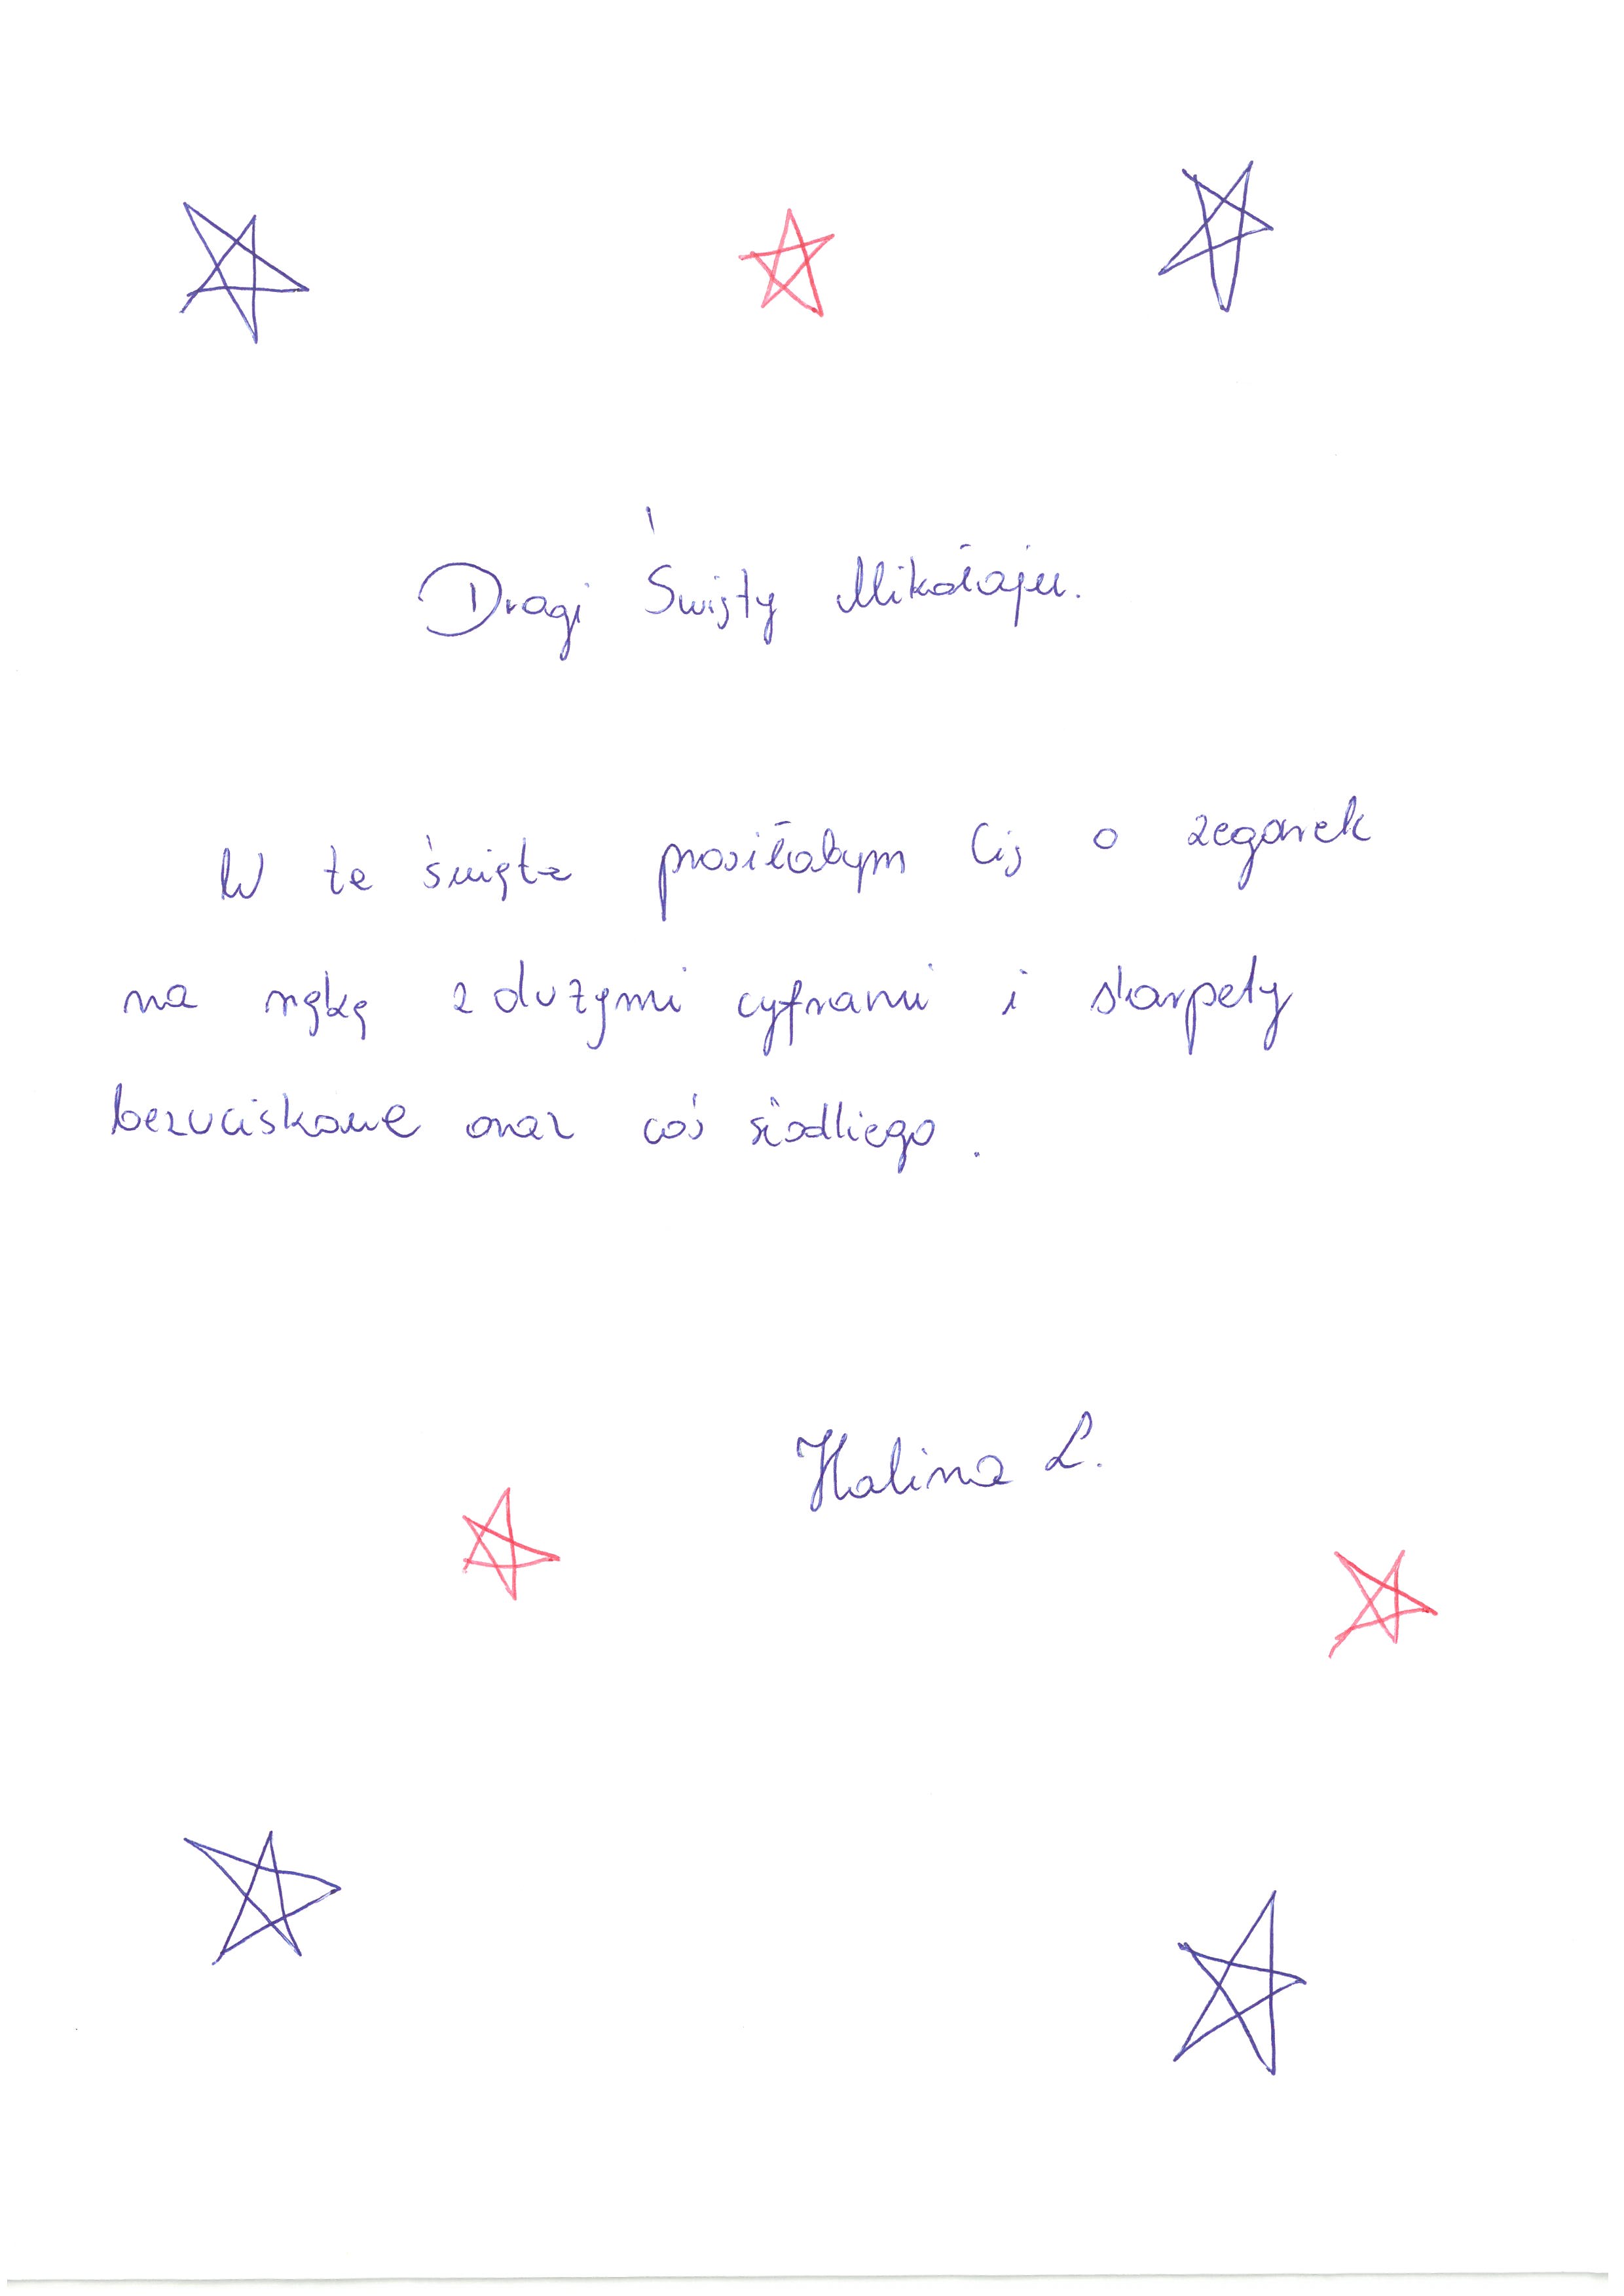 Drogi Święty Mikołaju.
W te święta prosiłabym Cię o zegarek
na rękę z dużymi cyframi i skarpety
bezuciskowe oraz coś słodkiego.
Halina L.